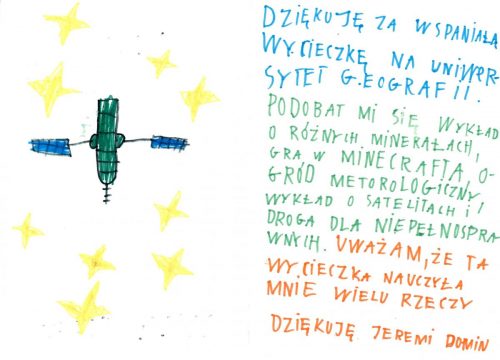 DZIĘKUJĘ ZA WSPANIAŁĄ
WYCIECZKĘ NA UNIWER-
SYTET GEOGRAFII.
PODOBAŁ MI SIĘ WYKŁAD
O RÓŻNYCH MINERAŁACH,
GRA W MINECRAFTA, O-
GRÓD METOROLOGICZNY
WYKŁAD O SATELITACH I
DROGA DLA NIEPEŁNOSPRA-
WNYCH. UWAŻAM, ŻE TA
WYCIECZKA NAUCZYŁA
MNIE WIELU RZECZY
DZIĘKUJĘ JEREMI DOMIN